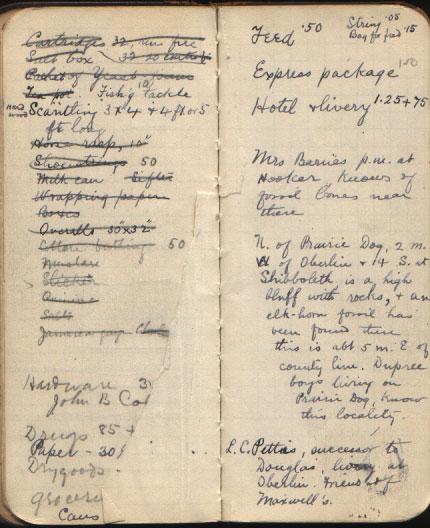 Cartridges 32, rim fire
Salt box 32
Packet of Yeast
Tea pot. Fish'g Tackle
Hard wood Scantling 3x4 & 4 ft. or 5
ft. long
Horse rasp, 10"
Shoestrings 50
Milk can Sifter
Wrapping paper
Boxes
Overalls 30"x32"
Cotton batting 50
Mustard
Quinine
Salts
Jamaica
Hardware 3
John B Col
Drugs 85
Paper - 30
Drygoods -
Grocer
Cans
Feed .50 String .05
Bag for feed .15
Express package 1.50
Hotel & livery 1.25 + 75
Mrs Barnes p.m. at
Hooker knows of
fossil bones near
there
N. of Prairie Dog, 2 m.
W of Oberlin & 14 S. at
Shibboleth, is a high
bluff with rocks, & an
elk-horn fossil has
been found there
this is abt 5 m. E of
county line. Dupree
boys living on
Prairie Dog, know
this locality.
L. C. Pettis, successor to
Douglas, livery at
Oberlin. Friend of
Maxwell's.